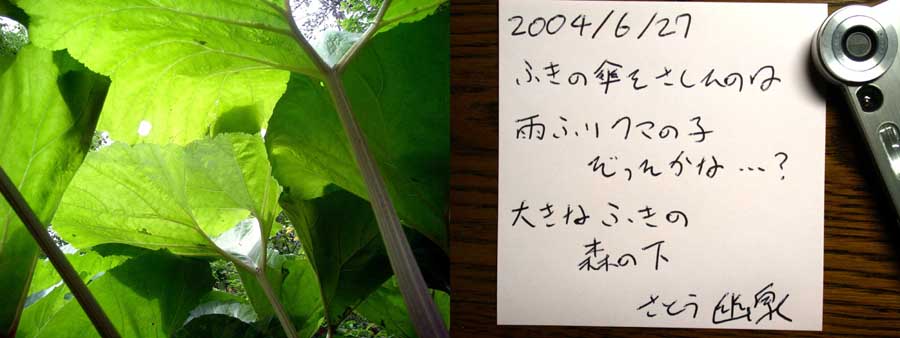 2004/6/27
ふきの傘をさしたのは
雨ふりクマの子
だったかな…?
大きなふきの
森の下
さとう